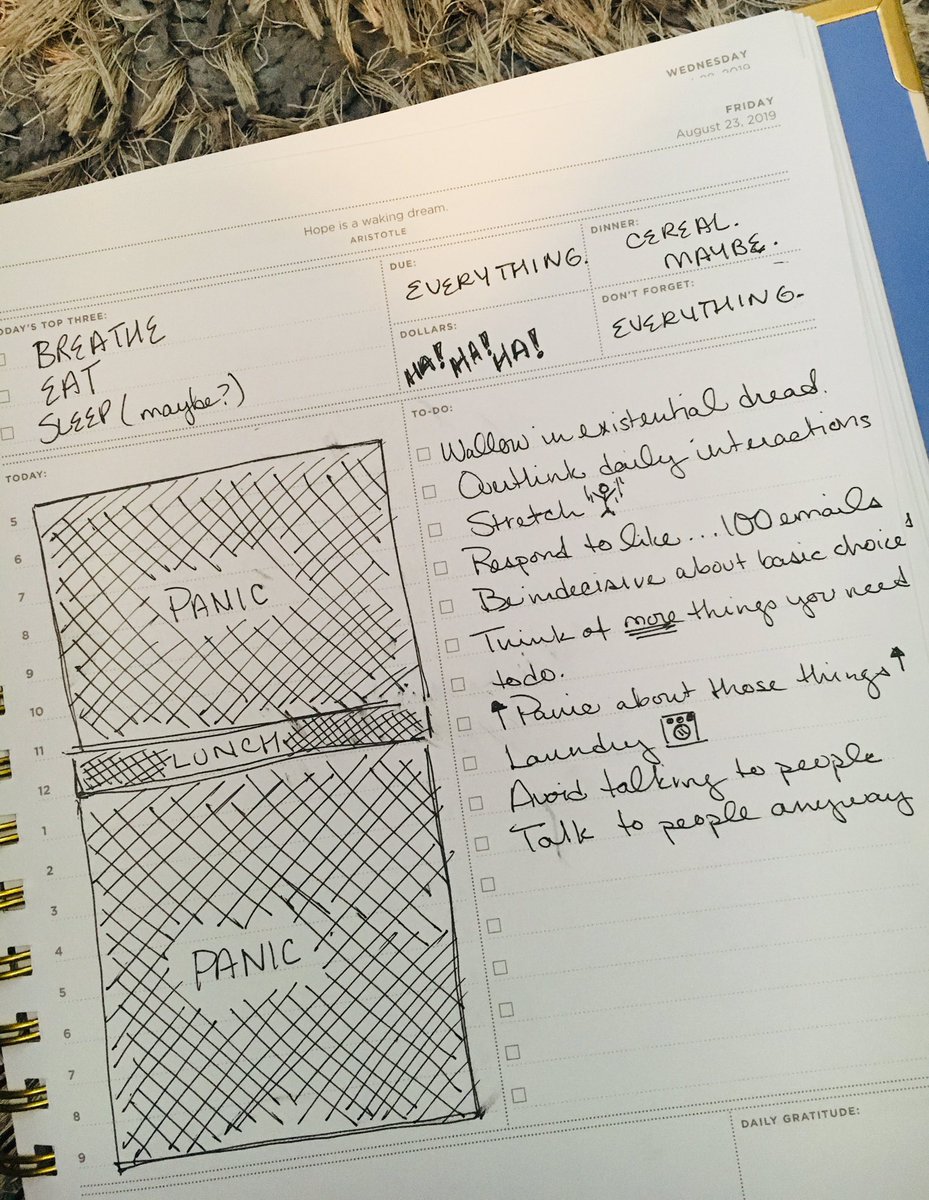 WEDNESDAY
FRIDAY
August 23, 2019
Hope is a waking dream.
ARISTOTLE
ODAY'S TOP THREE:
BREATHE
EAT
SLEEP (maybe?)
DUE:
EVERYTHING.
DINNER:
CEREAL.
MAYBE.
DOLLARS:
HA! HA! HA!
DON'T FORGET:
EVERYTHING.
TODAY:
5
6
7
8
9
10
11
12
1
2
3
4
5
6
7
8
9
PANIC
LUNCH
PANIC
TO-DO:
Wallow in existential dread.
Overthink daily interactions
Stretch
Respond to like... 100 emails
Be indecisive about basic choices
Think of more things you need
to do.
↑ Panic about those things ↑
Laundry
Avoid talking to people
Talk to people anyway
DAILY GRATITUDE: